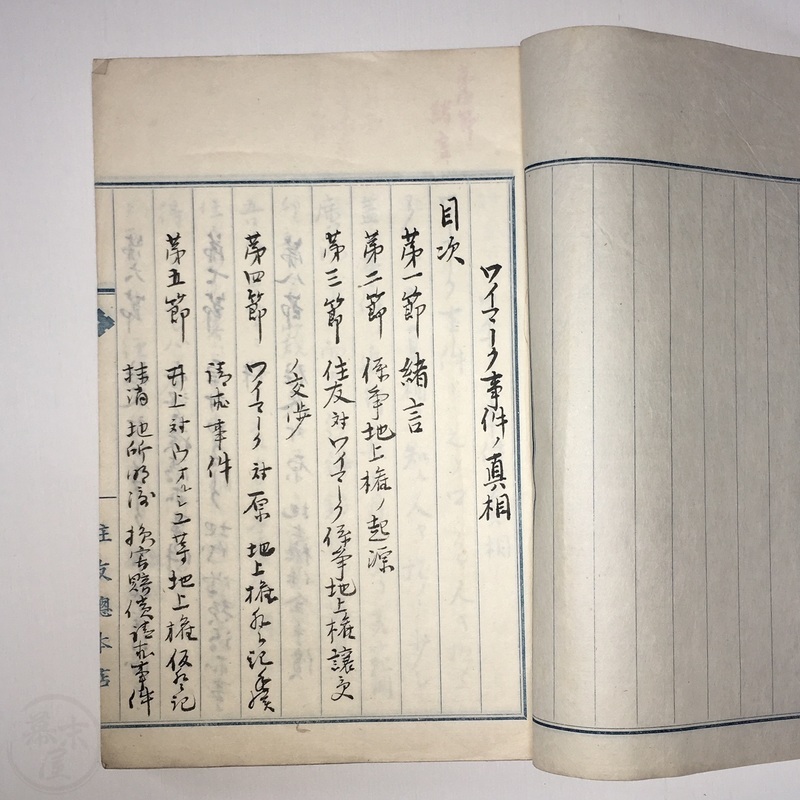 ワイマーク事件ノ真相
目次
第一節 緒言
第二節 係争地上権ノ起源
第三節 住友対ワイマーク係争地上権譲受
ノ交渉
第四節 ワイマーク対原地上権登記手続
請求事件
第五節 井上対ウオルシユ等地上権仮登記
抹消地所明渡損害賠償請求事件
住友總本店
幕末屋